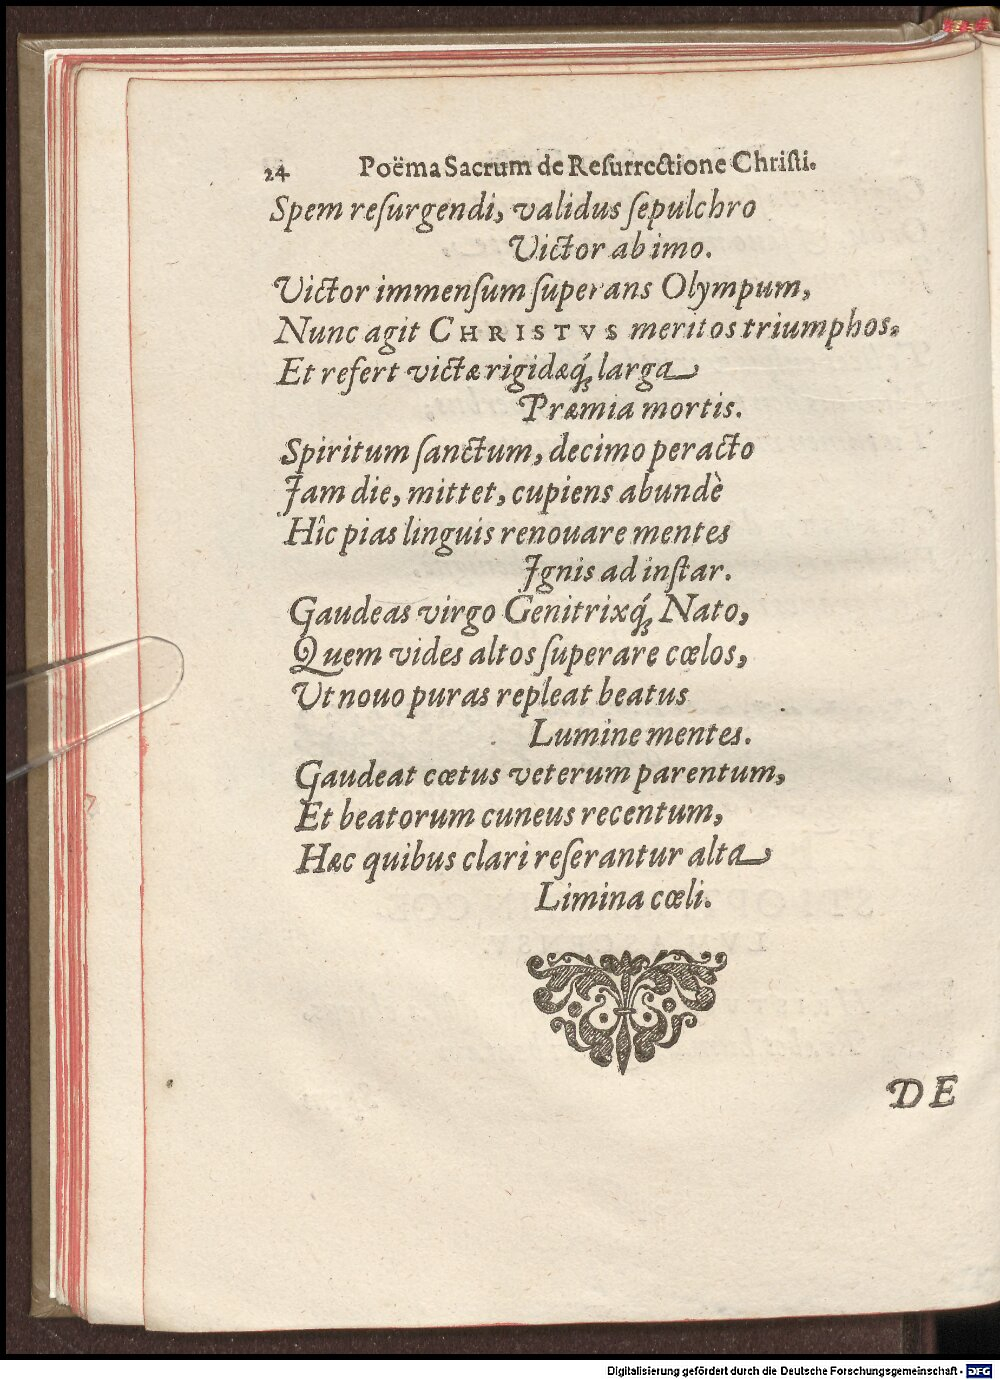 24 Poëma Sacrum de Reſurrectione Chriſti.
Spem reſurgendi, validus ſepulchro
Victor ab imo.
Victor immenſum ſuperans Olympum,
Nunc agit CHRISTVS meritos triumphos.
Et refert victæ rigidæq́; larga
Præmia mortis.
Spiritum ſanctum, decimo peracto
Jam die, mittet, cupiens abundè
Hîc pias linguis renouare mentes
Jgnis ad inſtar.
Gaudeas virgo Genitrixq́; Nato,
Quem vides altos ſuperare cœlos,
Vt nouo puras repleat beatus
Lumine mentes.
Gaudeat cœtus veterum parentum,
Et beatorum cuneus recentum,
Hæc quibus clari reſerantur alta
Limina cœli.
DE
Digitalisierung gefördert durch die Deutsche Forschungsgemeinschaft - DFG